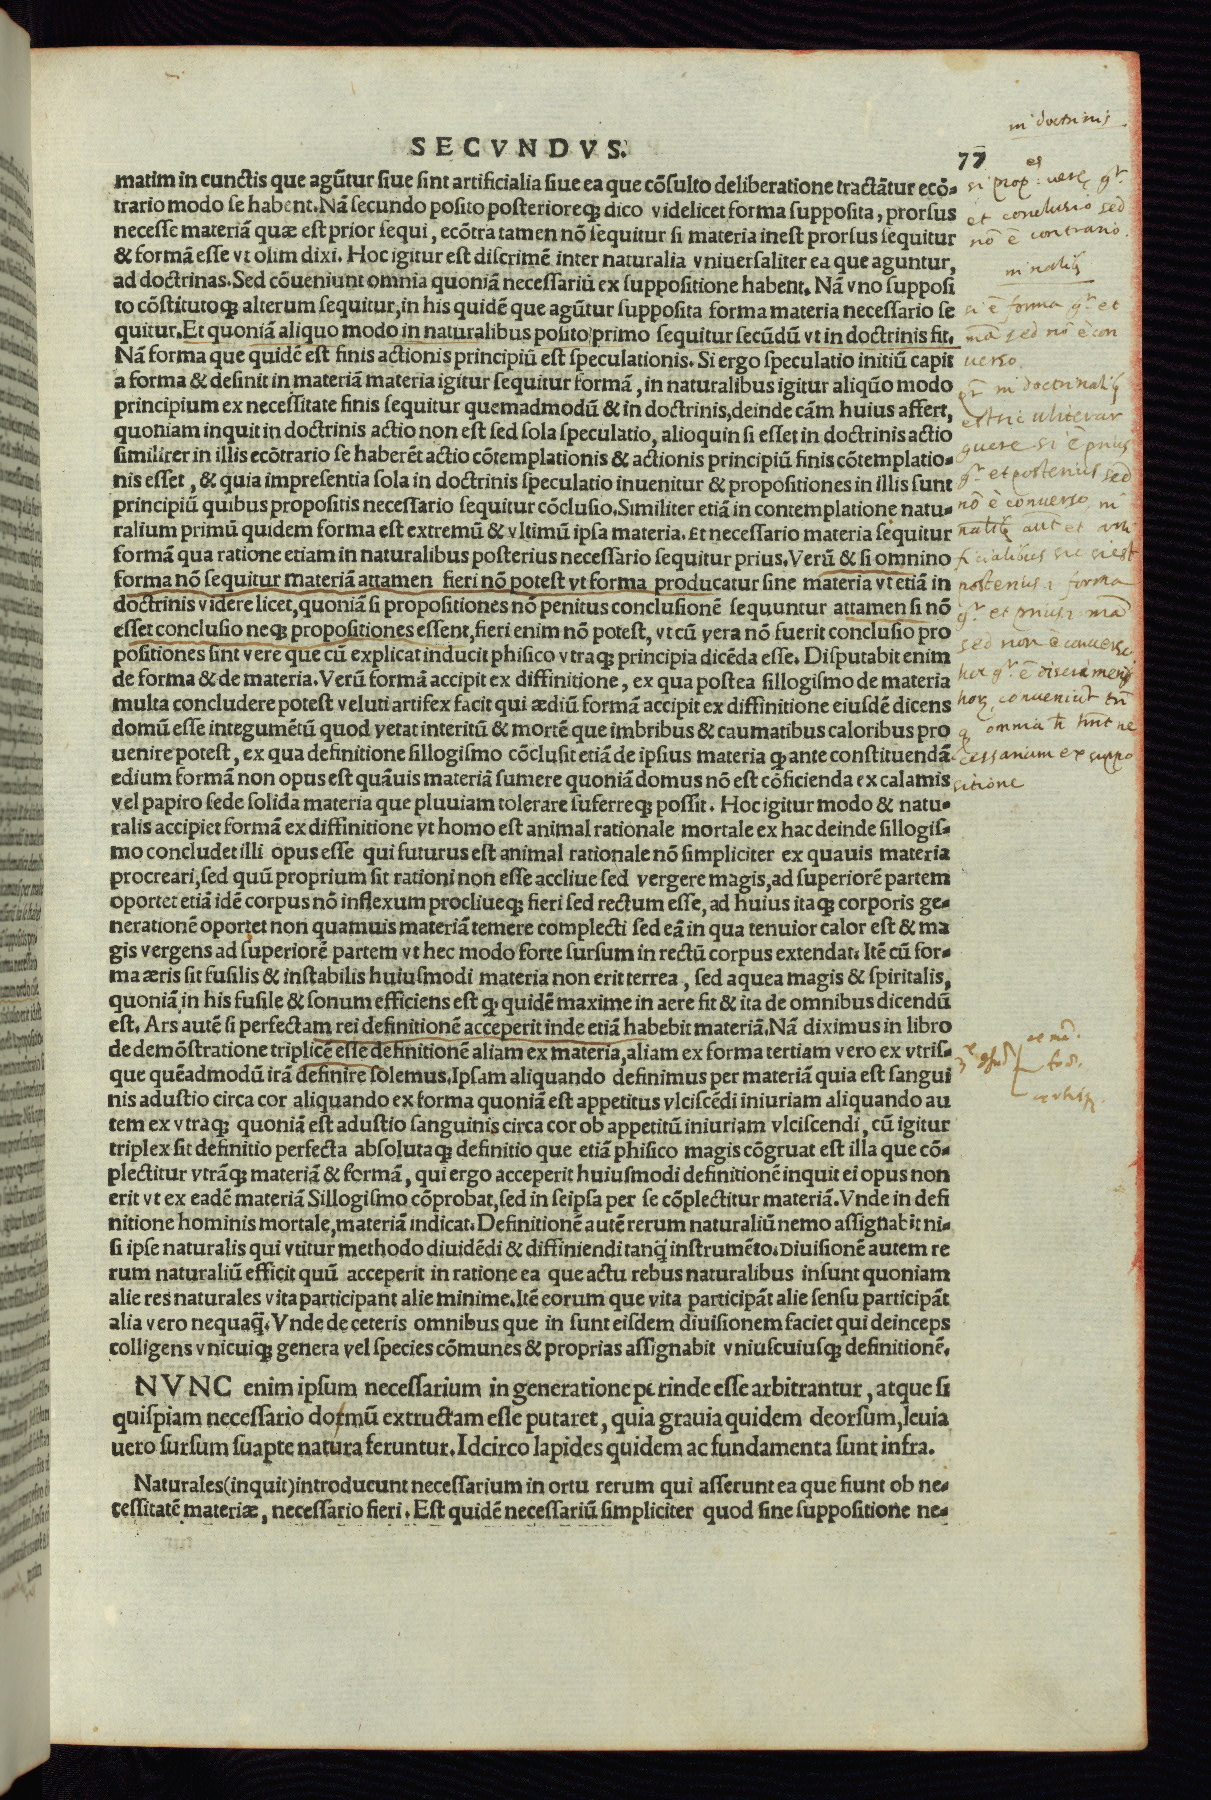 SECVNDVS.
77
matim in cunctis que agūtur siue sint artificialia siue ea que cōsulto deliberatione tractātur ecō-
trario modo se habent. Nā secundo posito posterioreq; dico videlicet forma supposita, prorsus
necesse materiā quæ est prior sequi, ecōtra tamen nō sequitur si materia inest prorsus sequitur
& formā esse vt olim dixi. Hoc igitur est discrimē inter naturalia vniuersaliter ea que aguntur,
ad doctrinas. Sed cōueniunt omnia quoniā necessariū ex suppositione habent. Nā vno supposi
to cōstitutoq; alterum sequitur, in his quidē que agūtur supposita forma materia necessario se
quitur. Et quoniā aliquo modo in naturalibus posito primo sequitur secūdū vt in doctrinis fit.
Nā forma que quidē est finis actionis principiū est speculationis. Si ergo speculatio initiū capit
a forma & desinit in materiā materia igitur sequitur formā, in naturalibus igitur aliqūo modo
principium ex necessitate finis sequitur quemadmodū & in doctrinis, deinde cām huius affert,
quoniam inquit in doctrinis actio non est sed sola speculatio, alioquin si esset in doctrinis actio
similirer in illis ecōtrario se haberēt actio cōtemplationis & actionis principiū finis cōtemplatio-
nis esset, & quia impresentia sola in doctrinis speculatio inuenitur & propositiones in illis sunt
principiū quibus propositis necessario sequitur cōclusio. Similiter etiā in contemplatione natu-
ralium primū quidem forma est extremū & vltimū ipsa materia. Et necessario materia sequitur
formā qua ratione etiam in naturalibus posterius necessario sequitur prius. Verū & si omnino
forma nō sequitur materiā attamen fieri nō potest vt forma producatur sine materia vt etiā in
doctrinis videre licet, quoniā si propositiones nō penitus conclusionē sequuntur attamen si nō
esset conclusio neq; propositiones essent, fieri enim nō potest, vt cū vera nō fuerit conclusio pro
positiones sint vere que cū explicat inducit phisico vtraq; principia dicēda esse. Disputabit enim
de forma & de materia. Verū formā accipit ex diffinitione, ex qua postea sillogismo de materia
multa concludere potest veluti artifex facit qui ædiū formā accipit ex diffinitione eiusdē dicens
domū esse integumētū quod vetat interitū & mortē que imbribus & caumatibus caloribus pro
uenire potest, ex qua definitione sillogismo cōclusit etiā de ipsius materia q; ante constituendā
edium formā non opus est quāuis materiā sumere quoniā domus nō est cōficienda ex calamis
vel papiro sede solida materia que pluuiam tolerare suferreq; possit. Hoc igitur modo & natu-
ralis accipiet formā ex diffinitione vt homo est animal rationale mortale ex hac deinde sillogis-
mo concludet illi opus esse qui futurus est animal rationale nō simpliciter ex quauis materia
procreari, sed quū proprium sit rationi non esse accliue sed vergere magis, ad superiorē partem
oportet etiā idē corpus nō inflexum procliueq; fieri sed rectum esse, ad huius itaq; corporis ge-
nerationē oportet non quamuis materiā temere complecti sed eā in qua tenuior calor est & ma
gis vergens ad superiorē partem vt hec modo forte sursum in rectū corpus extendat. Itē cū for-
ma æris sit fusilis & instabilis huiusmodi materia non erit terrea, sed aquea magis & spiritalis,
quoniā in his fusile & sonum efficiens est q; quidē maxime in aere fit & ita de omnibus dicendū
est. Ars autē si perfectam rei definitionē acceperit inde etiā habebit materiā. Nā diximus in libro
de demōstratione triplicē esse definitionē aliam ex materia, aliam ex forma tertiam vero ex vtris-
que quēadmodū irā definire solemus. Ipsam aliquando definimus per materiā quia est sangui
nis adustio circa cor aliquando ex forma quoniā est appetitus vlciscēdi iniuriam aliquando au
tem ex vtraq; quoniā est adustio sanguinis circa cor ob appetitū iniuriam vlciscendi, cū igitur
triplex sit definitio perfecta absolutaq; definitio que etiā phisico magis cōgruat est illa que cō-
plectitur vtrāq; materiā & formā, qui ergo acceperit huiusmodi definitionē inquit ei opus non
erit vt ex eadē materiā Sillogismo cōprobat, sed in seipsa per se cōplectitur materiā. Vnde in defi
nitione hominis mortale, materiā indicat. Definitionē autē rerum naturaliū nemo assignabit ni-
si ipse naturalis qui vtitur methodo diuidēdi & diffiniendi tanq̄ instrumēto. Diuisionē autem re
rum naturaliū efficit quū acceperit in ratione ea que actu rebus naturalibus insunt quoniam
alie res naturales vita participant alie minime. Itē eorum que vita participāt alie sensu participāt
alia vero nequaq̄. Vnde de ceteris omnibus que in sunt eisdem diuisionem faciet qui deinceps
colligens vnicuiq; genera vel species cōmunes & proprias assignabit vniuscuiusq; definitionē.
NVNC enim ipsum necessarium in generatione perinde esse arbitrantur, atque si
quispiam necessario domū extructam esse putaret, quia grauia quidem deorsum, leuia
uero sursum suapte natura feruntur. Idcirco lapides quidem ac fundamenta sunt infra.
Naturales (inquit) introducunt necessarium in ortu rerum qui asserunt ea que fiunt ob ne-
cessitatē materiæ, necessario fieri. Est quidē necessariū simpliciter quod sine suppositione ne-
in doctrinis
et conclusio sed
nō ē contrario.
si ē forma gr et
mā sed nō ē con
verso
gr in doctrinalib
guere si ē prius
gr et posterius sed
nō ē converso in
ficialibus sic si est
posterius forma
gr et prius mā
sed non ē converso
hor conveniūt tn
omnia hnt ne
cessarium ex suppo
sitione